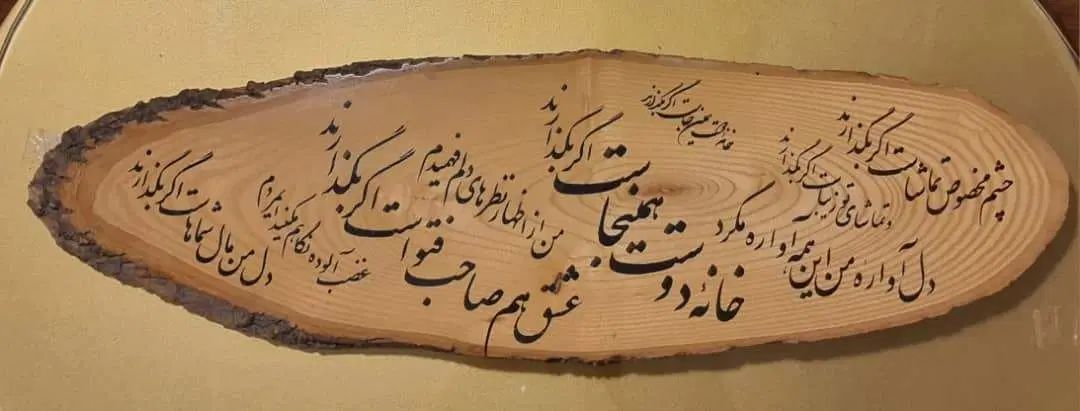 چشم مخصوص تماشاست اگر بگذارند
و تماشای تو زیباست اگر بگذارند
دل آواره من این همه آواره مگرد
خانهٔ دوست همینجاست اگر بگذارند
خانه دوست همین جاست اگر بگذارند
من از اظهار نظرهای دلم فهمیدم
عشق هم صاحب فتواست اگر بگذارند
غضب آلوده نگاهم نکنید ای مردم
دل من مال شماهاست اگر بگذارند